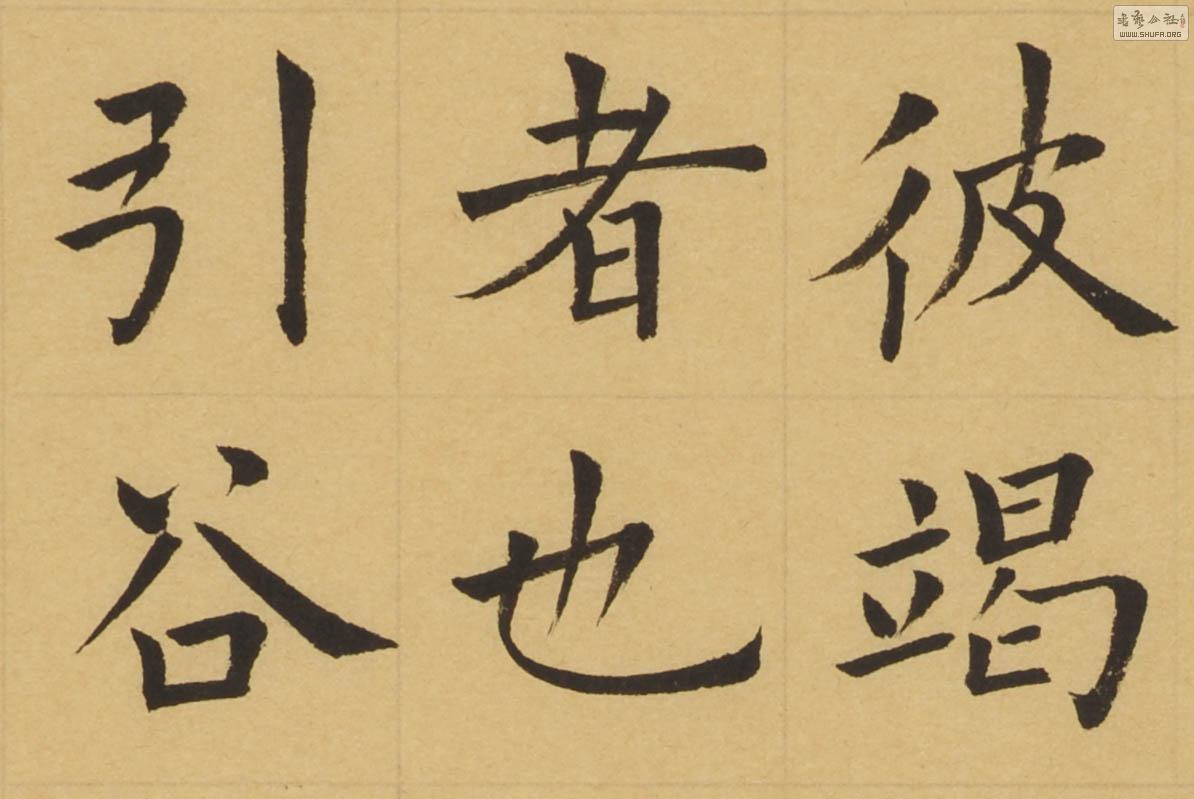 彼竭
者也
引谷
書藝公社
WWW.SHUFA.ORG